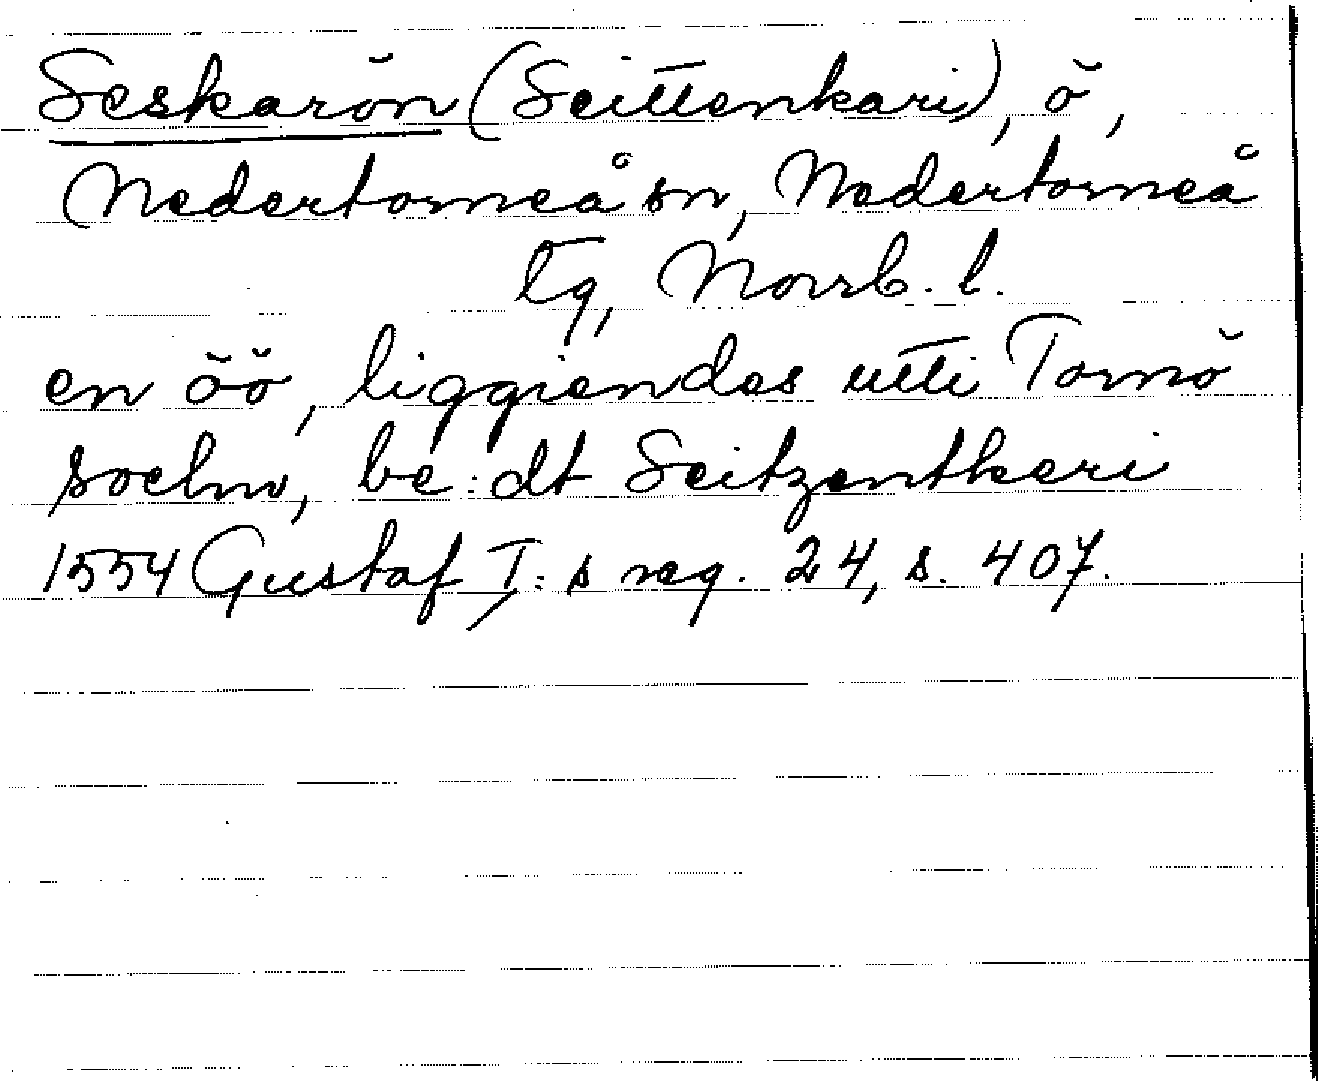 Seskarön (Seittenkari), ö,
Nedertorneå sn, Nedertorneå
tg, Norrb. l.
en öö, liggiendes utti Tornö
sochn, be:dt Seitzentkari
1554 Gustaf I:s reg. 24, s. 407.